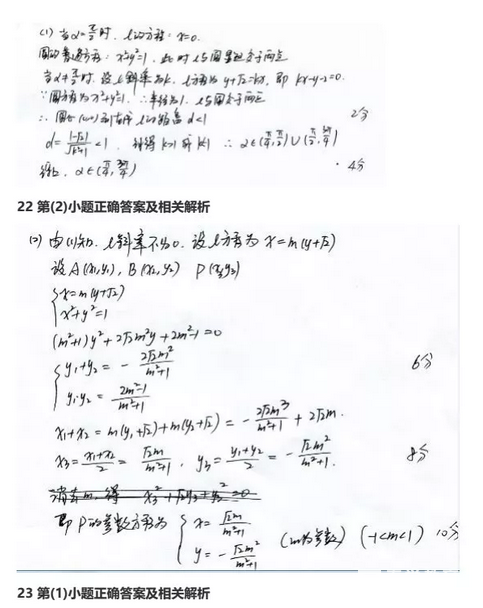 (1) 当α=π/2时, l的方程: x=0.
圆的普通方程: x²+y²=1, 此时l与圆显然交于两点
当α≠π/2时, 设l斜率为k, l方程为y+√2=kx, 即 kx-y-√2=0.
∵圆方程为x²+y²=1, ∴半径为1, l与圆交于两点
∴ 圆心(0,0)到直线l的距离 d<1 2分
d=|-√2|/√(k²+1)<1, 解得k>1或k<-1 ∴ α∈(π/4,π/2)∪(π/2,3π/4)
综上, α∈(π/4,3π/4) 4分
22 第(2)小题正确答案及相关解析
(2) 由(1)知, l斜率不为0. 设l方程为 x=m(y+√2)
设A(x₁,y₁), B(x₂,y₂) P(x₃,y₃)
{x=m(y+√2)
x²+y²=1
(m²+1)y²+2√2m²y+2m²-1=0
{y₁+y₂=-2√2m²/(m²+1) 6分
y₁·y₂=(2m²-1)/(m²+1)
x₁+x₂=m(y₁+√2)+m(y₂+√2)=-2√2m³/(m²+1)+2√2m.
x₃=(x₁+x₂)/2=√2m/(m²+1), y₃=(y₁+y₂)/2=-√2m²/(m²+1). 8分
消去m, 得 x₃²+√2y₃+y₃²=0
即P的参数方程为 {x=√2m/(m²+1)
y=-√2m²/(m²+1) (m为参数) (-1<m<1) 10分
23 第(1)小题正确答案及相关解析